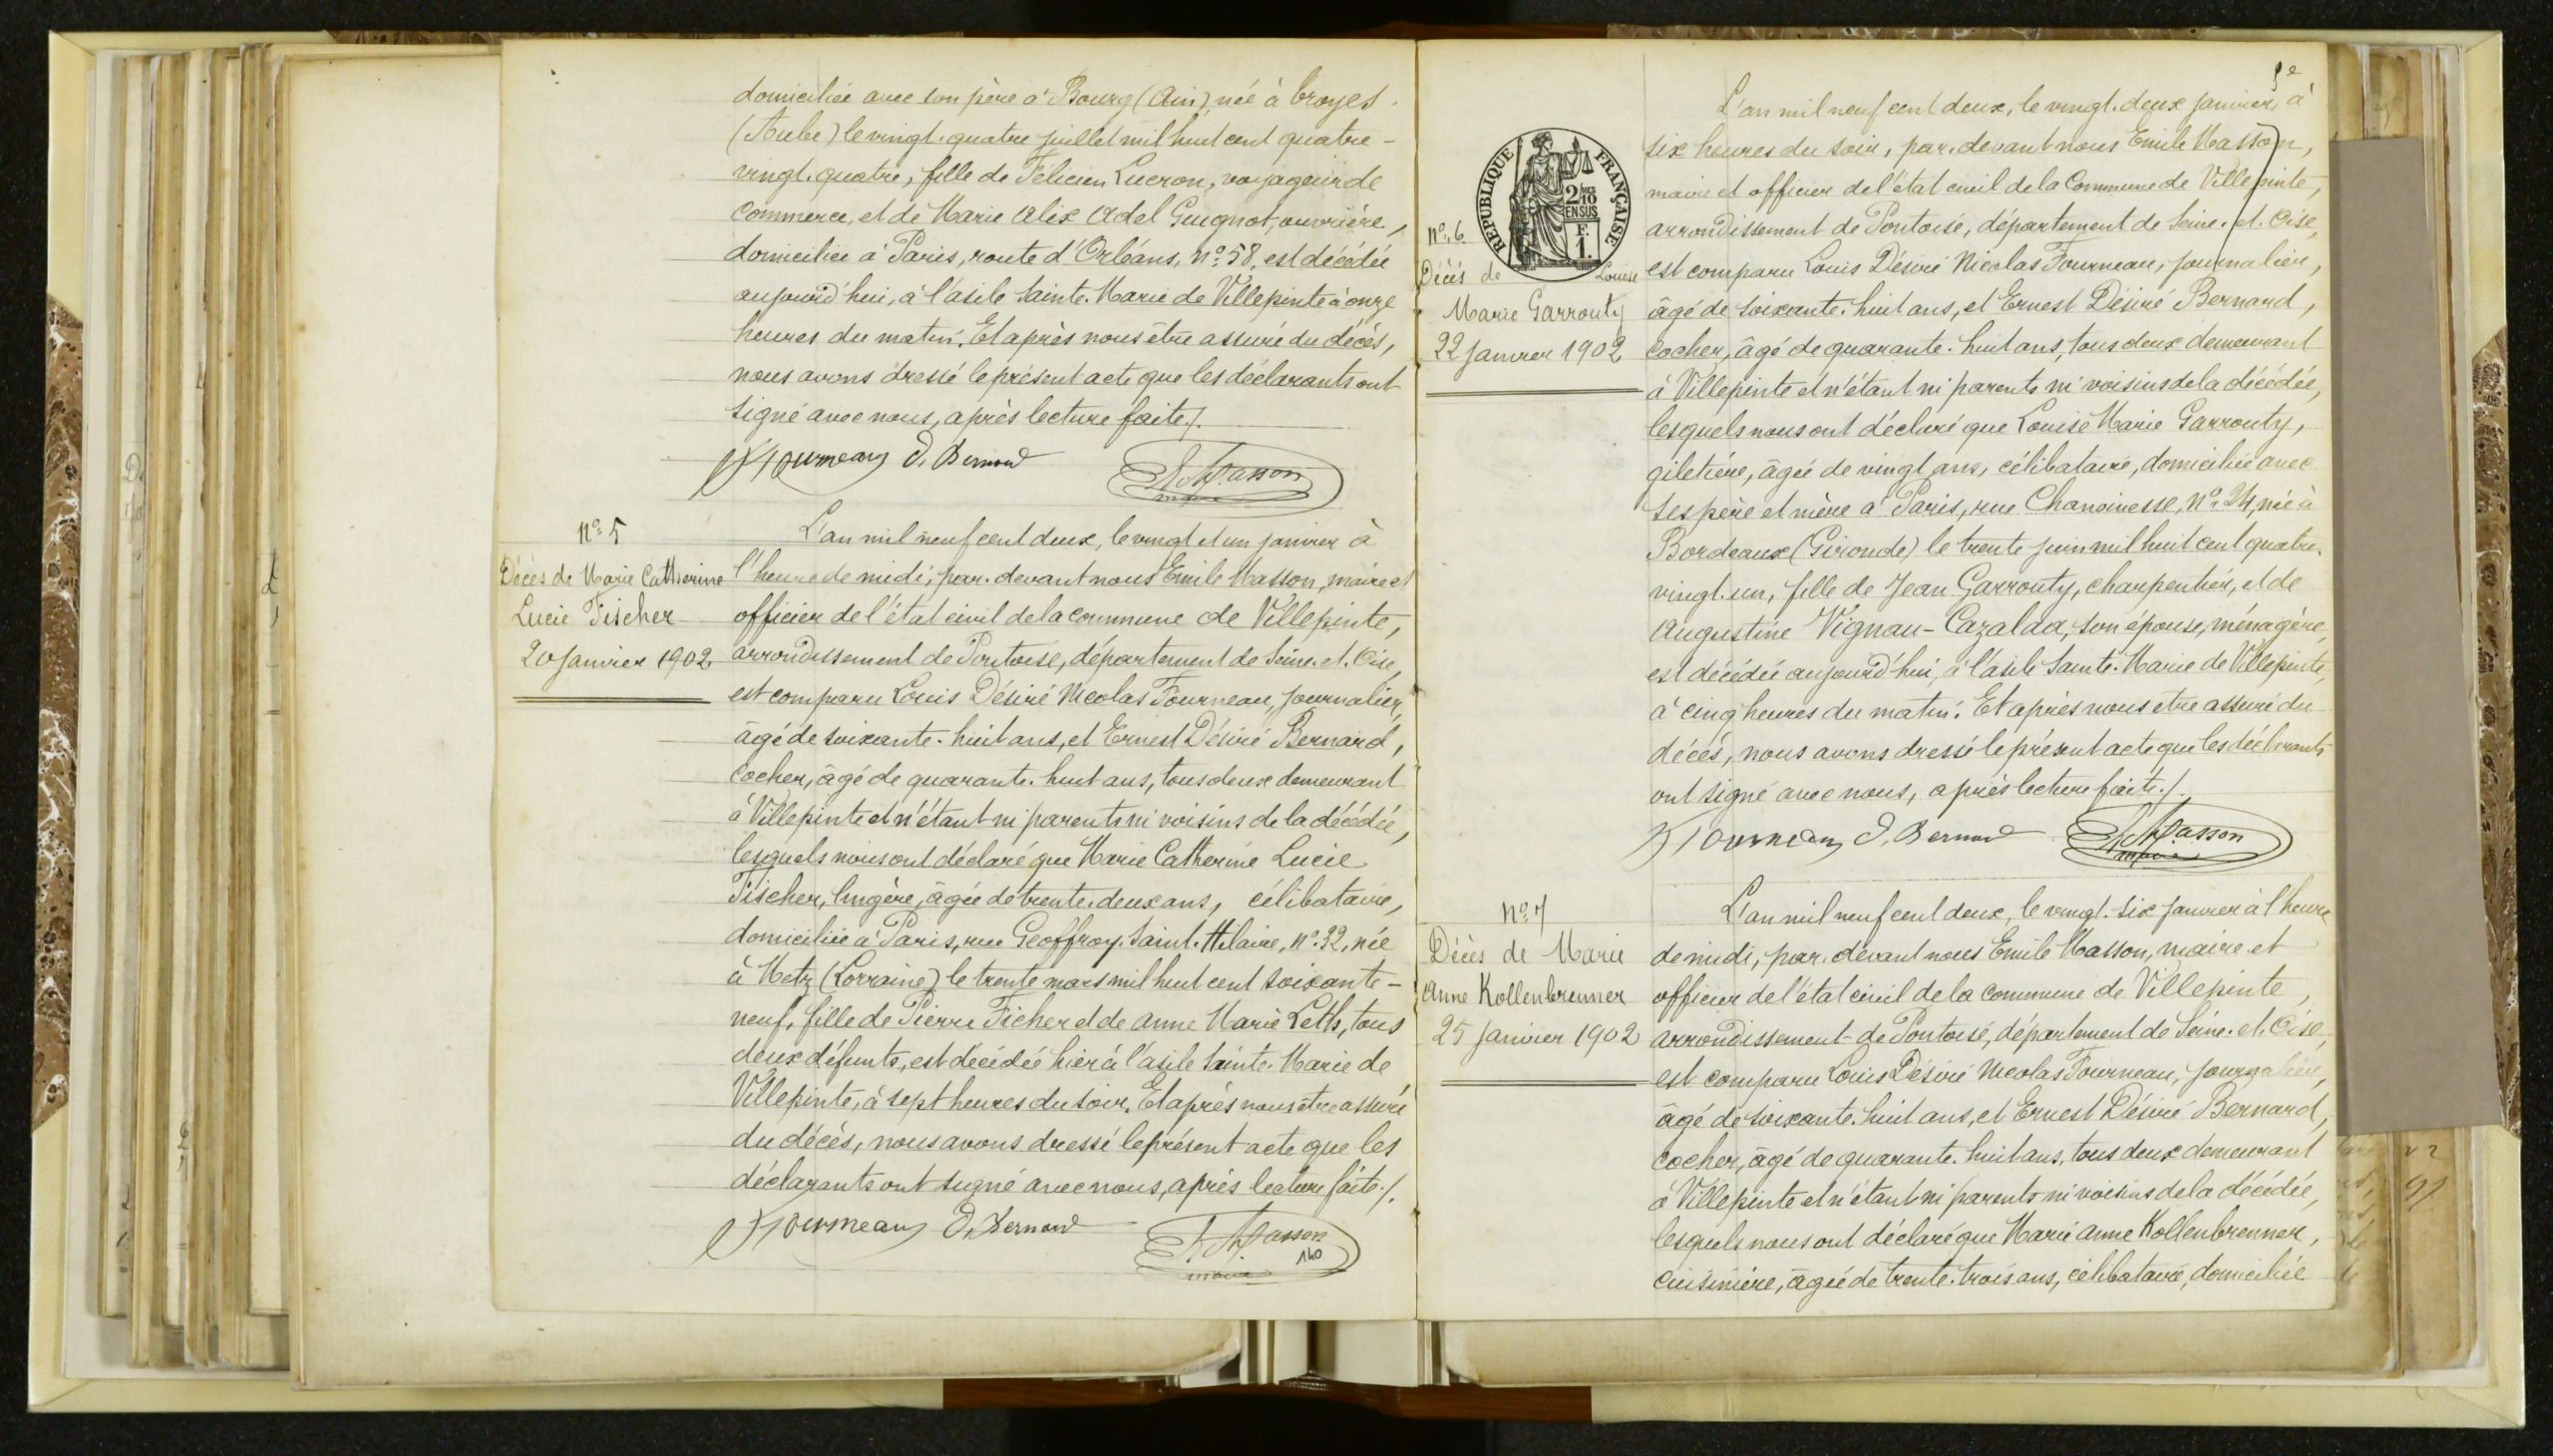 domiciliée avec son père à Bourg (Ain), née à Croyes
(Aube) le vingt-quatre juillet mil huit cent quatre-
vingt-quatre, fille de Félicien Lucron, voyageur de
Commerce, et de Marie Alix Adel Guignot, ouvrière,
domiciliée à Paris, route d'Orléans, N° 58, est décédée
aujourd'hui, à l'asile Sainte-Marie de Villepinte à onze
heures du matin. Et après nous être assuré du décès,
nous avons dressé le présent acte que les déclarants ont
signé avec nous, après lecture faite ./.
Fourneau D. Bernard E. Masson
maire
N° 5
Décès de Marie Catherine
Lucie Fischer
20 Janvier 1902
L'an mil neuf cent deux, le vingt et un janvier à
l'heure de midi, par-devant nous Emile Masson, maire et
officier de l'état civil de la commune de Villepinte,
arrondissement de Pontoise, département de Seine-et-Oise,
est comparu Louis Désiré Nicolas Fourneau, journalier,
âgé de soixante-huit ans, et Ernest Désiré Bernard,
Cocher, âgé de quarante-huit ans, tous deux demeurant
à Villepinte et n'étant ni parents ni voisins de la décédée,
lesquels nous ont déclaré que Marie Catherine Lucie
Fischer, lingère, âgée de trente-deux ans, célibataire,
domiciliée à Paris, rue Geoffroy-Saint-Hilaire, N° 32, née
à Metz (Lorraine) le trente mars mil huit cent soixante-
neuf, fille de Pierre Ficher et de Anne Marie Leth, tous
deux défunts, est décédée hier à l'asile Sainte-Marie de
Villepinte, à sept heures du soir. Et après nous être assuré
du décès, nous avons dressé le présent acte que les
déclarants ont signé avec nous, après lecture faite ./.
Fourneau D. Bernard E. Masson
maire
140
5e
RÉPUBLIQUE FRANÇAISE
2/10
EN SUS
F.
1.
N° 6
Décès de Louise
Marie Garrouty
22 Janvier 1902
L'an mil neuf cent deux, le vingt-deux janvier, à
six heures du soir, par-devant nous Emile Masson,
maire et officier de l'état civil de la Commune de Villepinte,
arrondissement de Pontoise, département de Seine-et-Oise,
est comparu Louis Désiré Nicolas Fourneau, journalier,
âgé de soixante-huit ans, et Ernest Désiré Bernard,
Cocher, âgé de quarante-huit ans, tous deux demeurant
à Villepinte et n'étant ni parents ni voisins de la décédée,
lesquels nous ont déclaré que Louise Marie Garrouty,
giletière, âgée de vingt ans, célibataire, domiciliée avec
ses père et mère à Paris, rue Chanoinesse, N° 24, née à
Bordeaux (Gironde) le trente juin mil huit cent quatre-
vingt-un, fille de Jean Garrouty, charpentier, et de
Augustine Vignau-Cazalaa, son épouse, ménagère,
est décédée aujourd'hui, à l'asile Sainte-Marie de Villepinte,
à cinq heures du matin. Et après nous être assuré du
décès, nous avons dressé le présent acte que les déclarants
ont signé avec nous, après lecture faite ./.
Fourneau D. Bernard E. Masson
maire
N° 7
Décès de Marie
Anne Kollenbrenner
25 Janvier 1902
L'an mil neuf cent deux, le vingt-six janvier à l'heure
de midi, par-devant nous Emile Masson, maire et
officier de l'état civil de la commune de Villepinte,
arrondissement de Pontoise, département de Seine-et-Oise,
est comparu Louis Désiré Nicolas Fourneau, journalier,
âgé de soixante-huit ans, et Ernest Désiré Bernard,
Cocher, âgé de quarante-huit ans, tous deux demeurant
à Villepinte et n'étant ni parents ni voisins de la décédée,
lesquels nous ont déclaré que Marie Anne Kollenbrenner,
Cuisinière, âgée de trente-trois ans, célibataire, domiciliée